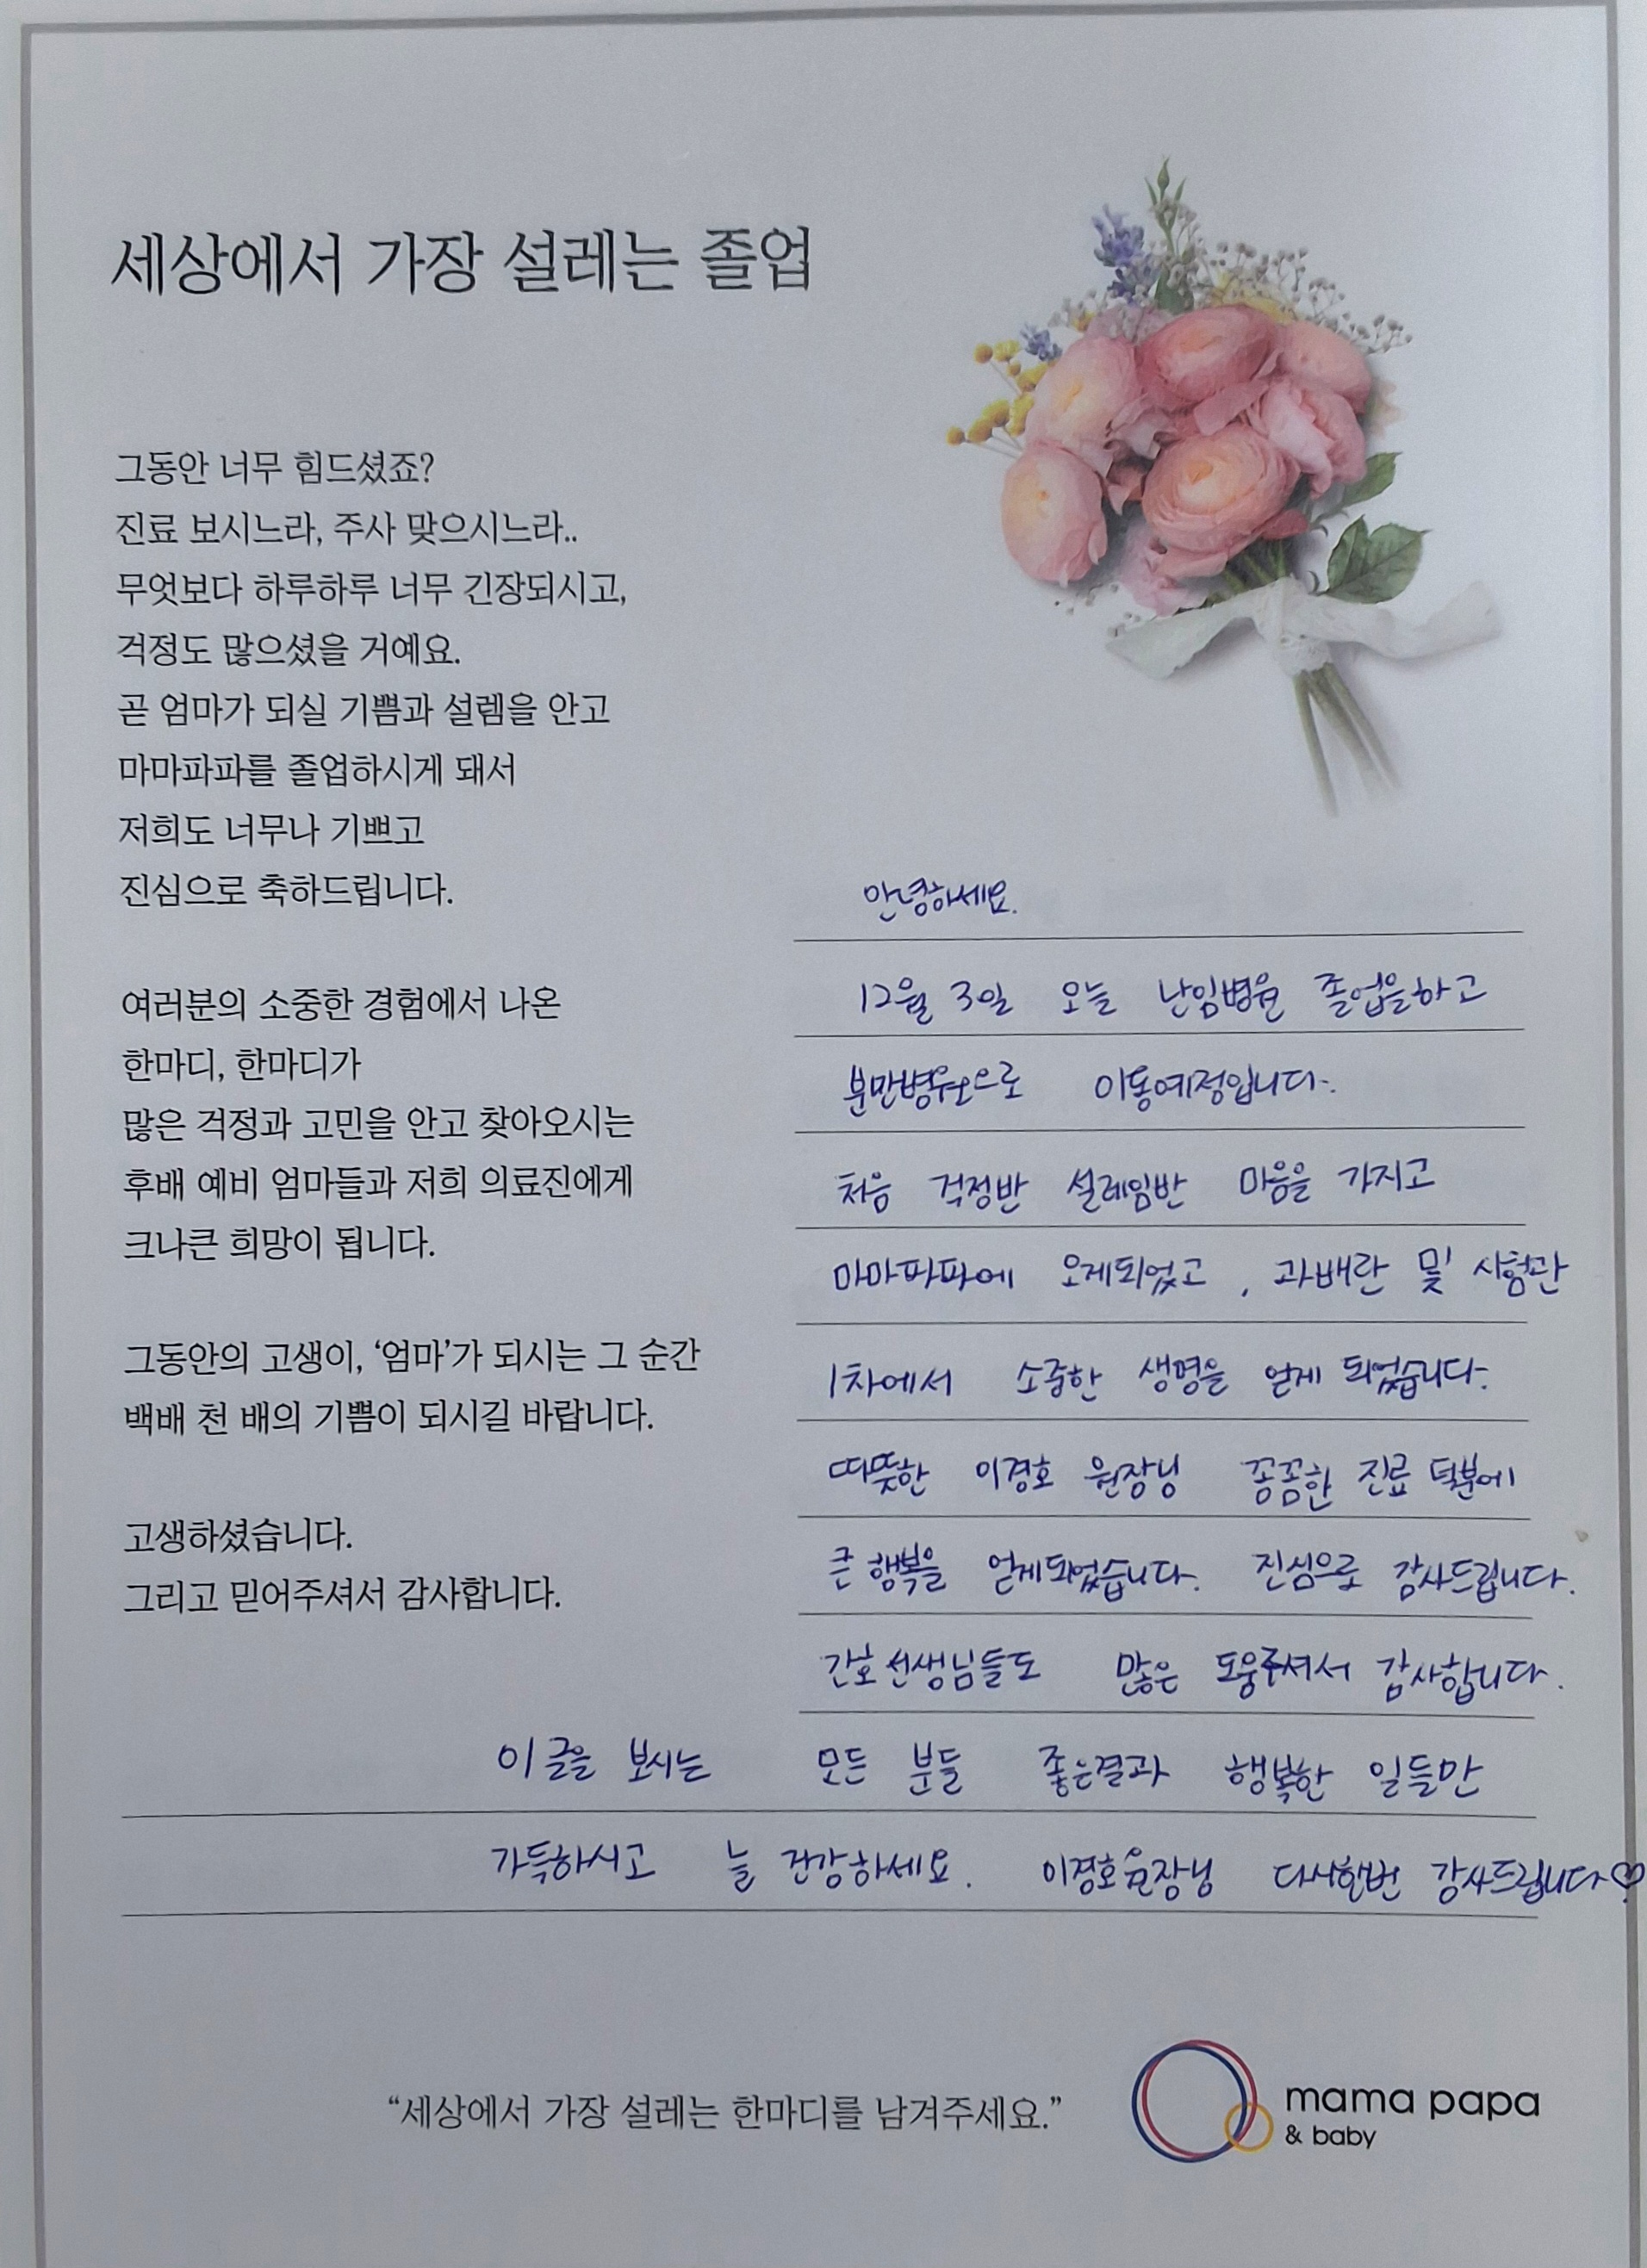 세상에서 가장 설레는 졸업
그동안 너무 힘드셨죠?
진료 보시느라, 주사 맞으시느라..
무엇보다 하루하루 너무 긴장되시고,
걱정도 많으셨을 거예요.
곧 엄마가 되실 기쁨과 설렘을 안고
마마파파를 졸업하시게 돼서
저희도 너무나 기쁘고
진심으로 축하드립니다.
여러분의 소중한 경험에서 나온
한마디, 한마디가
많은 걱정과 고민을 안고 찾아오시는
후배 예비 엄마들과 저희 의료진에게
크나큰 희망이 됩니다.
그동안의 고생이, ‘엄마’가 되시는 그 순간
백배 천 배의 기쁨이 되시길 바랍니다.
고생하셨습니다.
그리고 믿어주셔서 감사합니다.
안녕하세요.
12월 3일 오늘 난임병원 졸업을하고
분만병원으로 이동예정입니다.
처음 걱정반 설레임반 마음을 가지고
마마파파에 오게되었고, 과배란 및 시험관
1차에서 소중한 생명을 얻게 되었습니다.
따뜻한 이경호 원장님 꼼꼼한 진료 덕분에
큰 행복을 얻게되었습니다. 진심으로 감사드립니다.
간호선생님들도 많은 도움주셔서 감사합니다.
이글을 보시는 모든 분들 좋은결과 행복한 일들만
가득하시고 늘 건강하세요. 이경호원장님 다시한번 감사드립니다♡
“세상에서 가장 설레는 한마디를 남겨주세요.”
mama papa
& baby